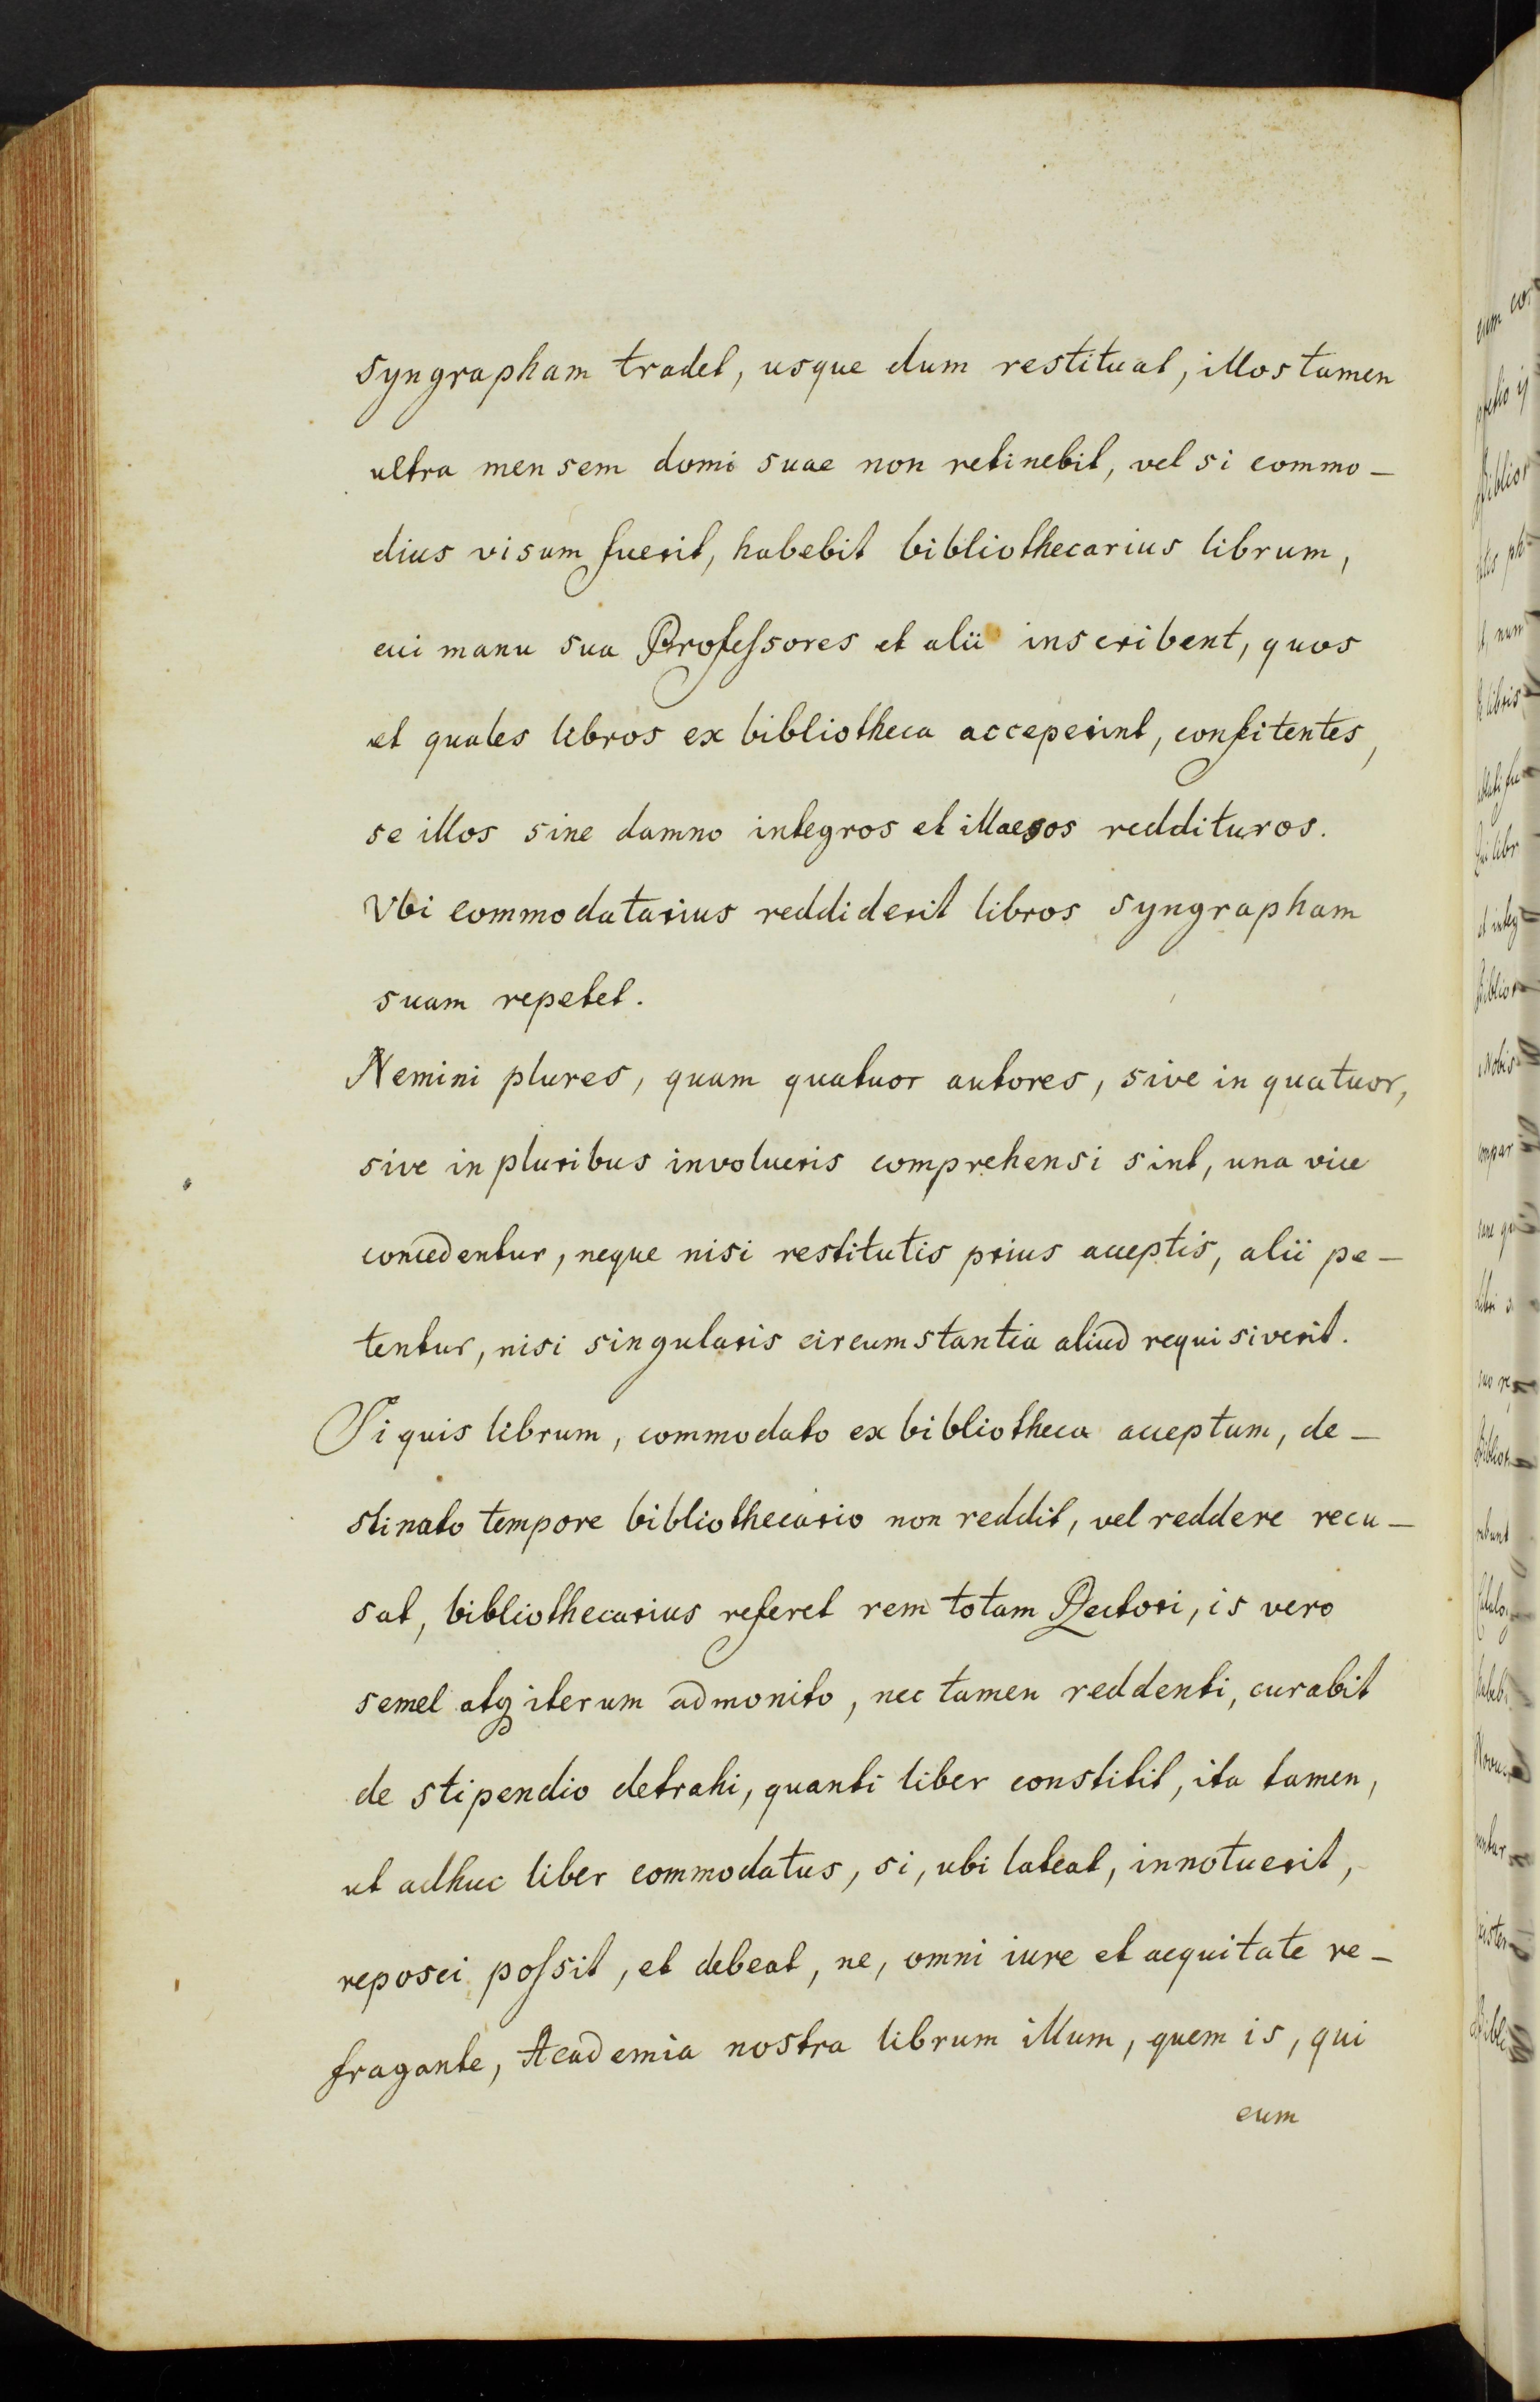 syngrapham tradet, usque dum restituat, illos tamen
ultra mensem domi suae non retinebit, vel si commo-
dius visum fuerit, habebit bibliothecarius librum,
cui manu sua Profeſsores et alii inscribent, quos
et quales libros ex bibliotheca acceperint, confitentes,
se illos sine damno integros et illaesos reddituros.
Vbi commodatarius reddiderit libros syngrapham
suam repetet.
Nemini plures, quam quatuor autores, sive in quatuor,
sive in pluribus involucris comprehensi sint, una vice
concedentur, neque nisi restitutis prius acceptis, alii pe-
tentur, nisi singularis circumstantia aliud requisiverit.
Si quis librum, commodato ex bibliotheca acceptum, de-
stinato tempore bibliothecario non reddit, vel reddere recu-
sat, bibliothecarius referet rem totam Rectori, is vero
semel atq iterum admonito, nec tamen reddenti, curabit
de stipendio detrahi, quanti liber constitit, ita tamen,
ut adhuc liber commodatus, si, ubi lateat, innotuerit,
reposci poſsit, et debeat, ne, omni iure et aequitate re-
fragante, Academia nostra librum illum, quem is, qui
eum